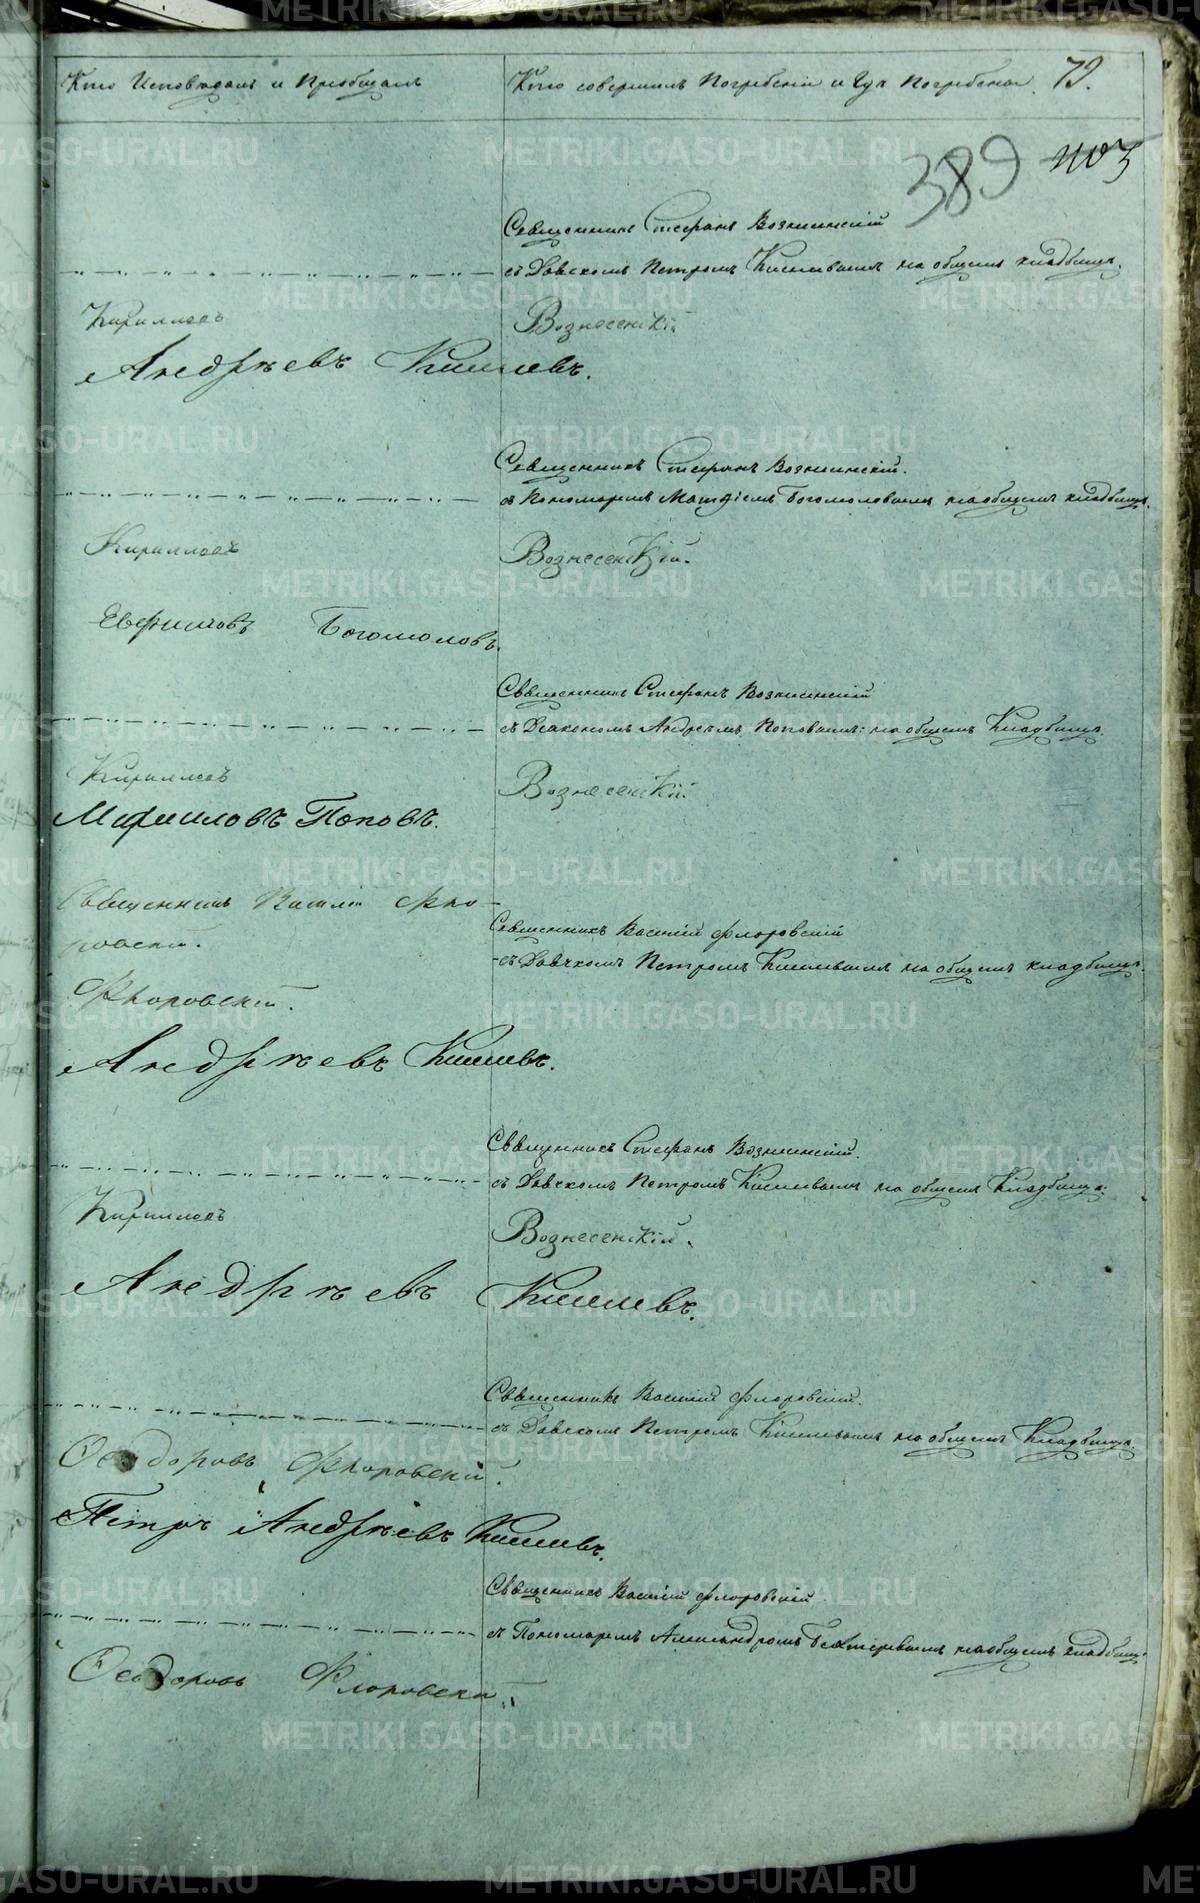 Кто Исповѣдалъ и Пріобщалъ
Кто совершалъ Погребеніе и Гдѣ Погребены
79.
389
403
Священникъ Стефанъ Вознесенскій
съ Дьячкомъ Петромъ Киселевымъ на общемъ кладбищѣ.
Кирилловъ Вознесенскій
Андреевъ Киселевъ.
Священникъ Стефанъ Вознесенскій.
съ Пономаремъ Матфіемъ Богомоловымъ на общемъ кладбищѣ.
Кирилловъ Вознесенскій.
Евфимовъ Богомоловъ.
Священникъ Стефанъ Вознесенскій
съ Діакономъ Андреемъ Поповымъ: на общемъ Кладбищѣ.
Кирилловъ Вознесенскій
Михаиловъ Поповъ.
Священникъ Василій Фло-
ровскій.
Священникъ Василій Флоровскій
съ Дьячкомъ Петромъ Киселевымъ на общемъ кладбищѣ.
Флоровскій.
Андрѣевъ Киселевъ.
Священникъ Стефанъ Вознесенскій.
съ Дьячкомъ Петромъ Киселевымъ на общемъ Кладбищѣ.
Кирилловъ Вознесенскій.
Андрѣевъ Киселевъ.
Священникъ Василій Флоровскій.
съ Дьячкомъ Петромъ Киселевымъ на общемъ Кладбищѣ.
Ѳеодоровъ Флоровскій.
Петръ Андрѣевъ Киселевъ.
Священникъ Василій Флоровскій
съ Пономаремъ Александромъ на общемъ кладбищѣ.
Ѳеодоровъ Флоровскій.